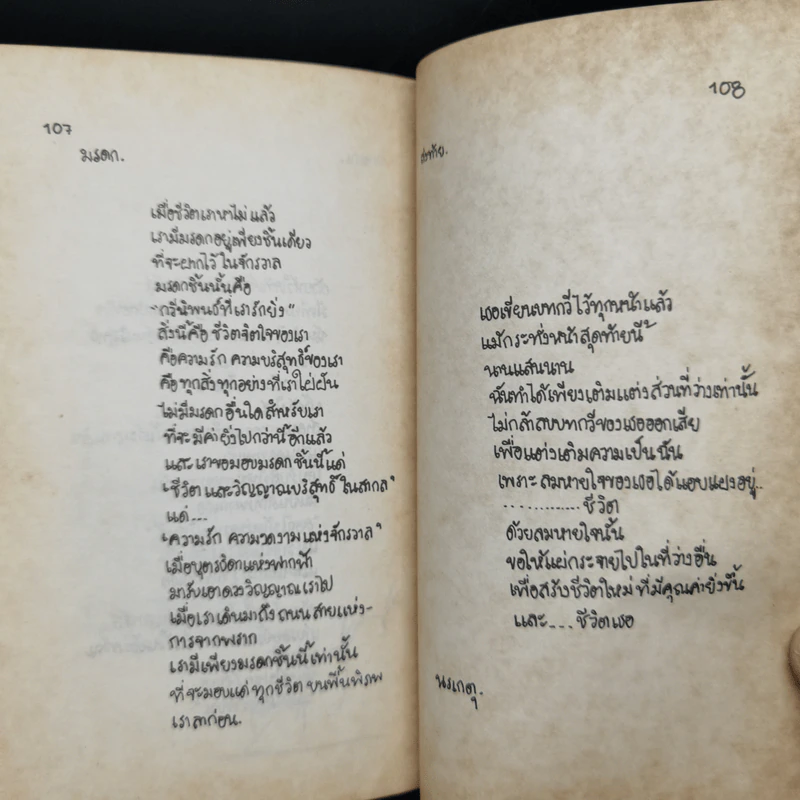 107
มรดก.
เมื่อชีวิตเราหาไม่แล้ว
เรามีมรดกอยู่เพียงชิ้นเดียว
ที่จะฝากไว้ในจักรวาล
มรดกชิ้นนั้นคือ
"กวีนิพนธ์ที่เรารักยิ่ง"
สิ่งนี้คือ ชีวิตจิตใจของเรา
คือความรัก ความบริสุทธิ์ของเรา
คือทุกสิ่งทุกอย่างที่เราใฝ่ฝัน
ไม่มีมรดกอื่นใดสำหรับเรา
ที่จะมีค่ายิ่งไปกว่านี้อีกแล้ว
และเราขอมอบมรดกชิ้นนี้แด่
"ชีวิตและวิญญาณบริสุทธิ์ในสากล"
แด่...
"ความรัก ความงดงามแห่งจักรวาล"
เมื่อบุตรธิดาแห่งฟากฟ้า
มารับเอาดวงวิญญาณเราไป
เมื่อเราเดินมาถึงถนนสายแห่ง-
การจากพราก
เรามีเพียงมรดกชิ้นนี้เท่านั้น
ที่จะมอบแด่ทุกชีวิต บนพื้นพิภพ
เราลาก่อน.
108
ส่งท้าย.
เธอเขียนบทกวีไว้ทุกหน้าแล้ว
แม้กระทั่งหน้าสุดท้ายนี้
นานแสนนาน
ฉันทำได้เพียงเติมแต่งส่วนที่ว่างเท่านั้น
ไม่กล้าลบบทกวีของเธอออกเสีย
เพื่อแต่งเติมความเป็นฉัน
เพราะลมหายใจของเธอได้แอบแฝงอยู่..
............ชีวิต
ด้วยลมหายใจนั้น
ขอให้แผ่กระจายไปในที่ว่างอื่น
เพื่อสร้างชีวิตใหม่ที่มีคุณค่ายิ่งขึ้น
และ....ชีวิตเธอ
นรเกตุ.